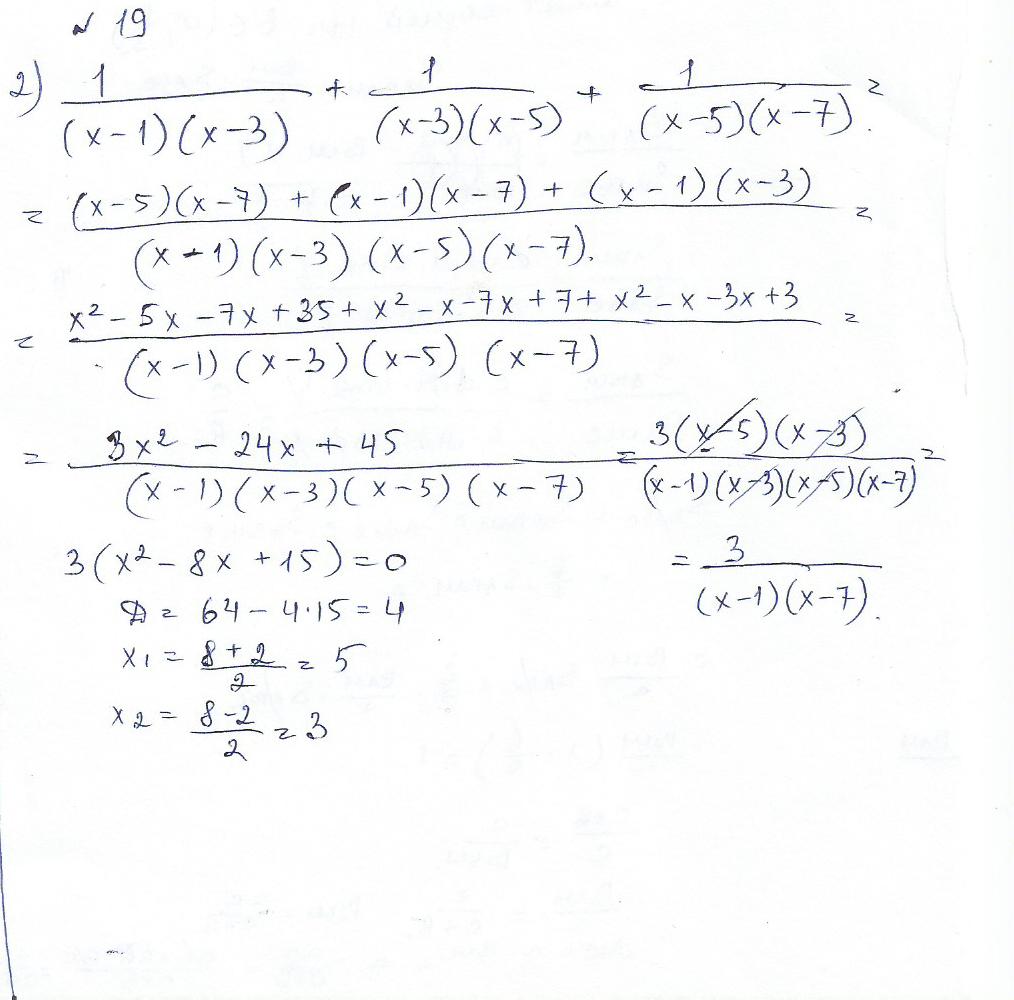 № 19
2) 1/((x-1)(x-3)) + 1/((x-3)(x-5)) + 1/((x-5)(x-7)) =
= ((x-5)(x-7) + (x-1)(x-7) + (x-1)(x-3))/((x-1)(x-3)(x-5)(x-7)) =
= (x² - 5x - 7x + 35 + x² - x - 7x + 7 + x² - x - 3x + 3)/((x-1)(x-3)(x-5)(x-7)) =
= (3x² - 24x + 45)/((x-1)(x-3)(x-5)(x-7)) = 3(x-5)(x-3)/((x-1)(x-3)(x-5)(x-7)) =
= 3/((x-1)(x-7)).
3(x² - 8x + 15) = 0
D = 64 - 4·15 = 4
x1 = (8+2)/2 = 5
x2 = (8-2)/2 = 3